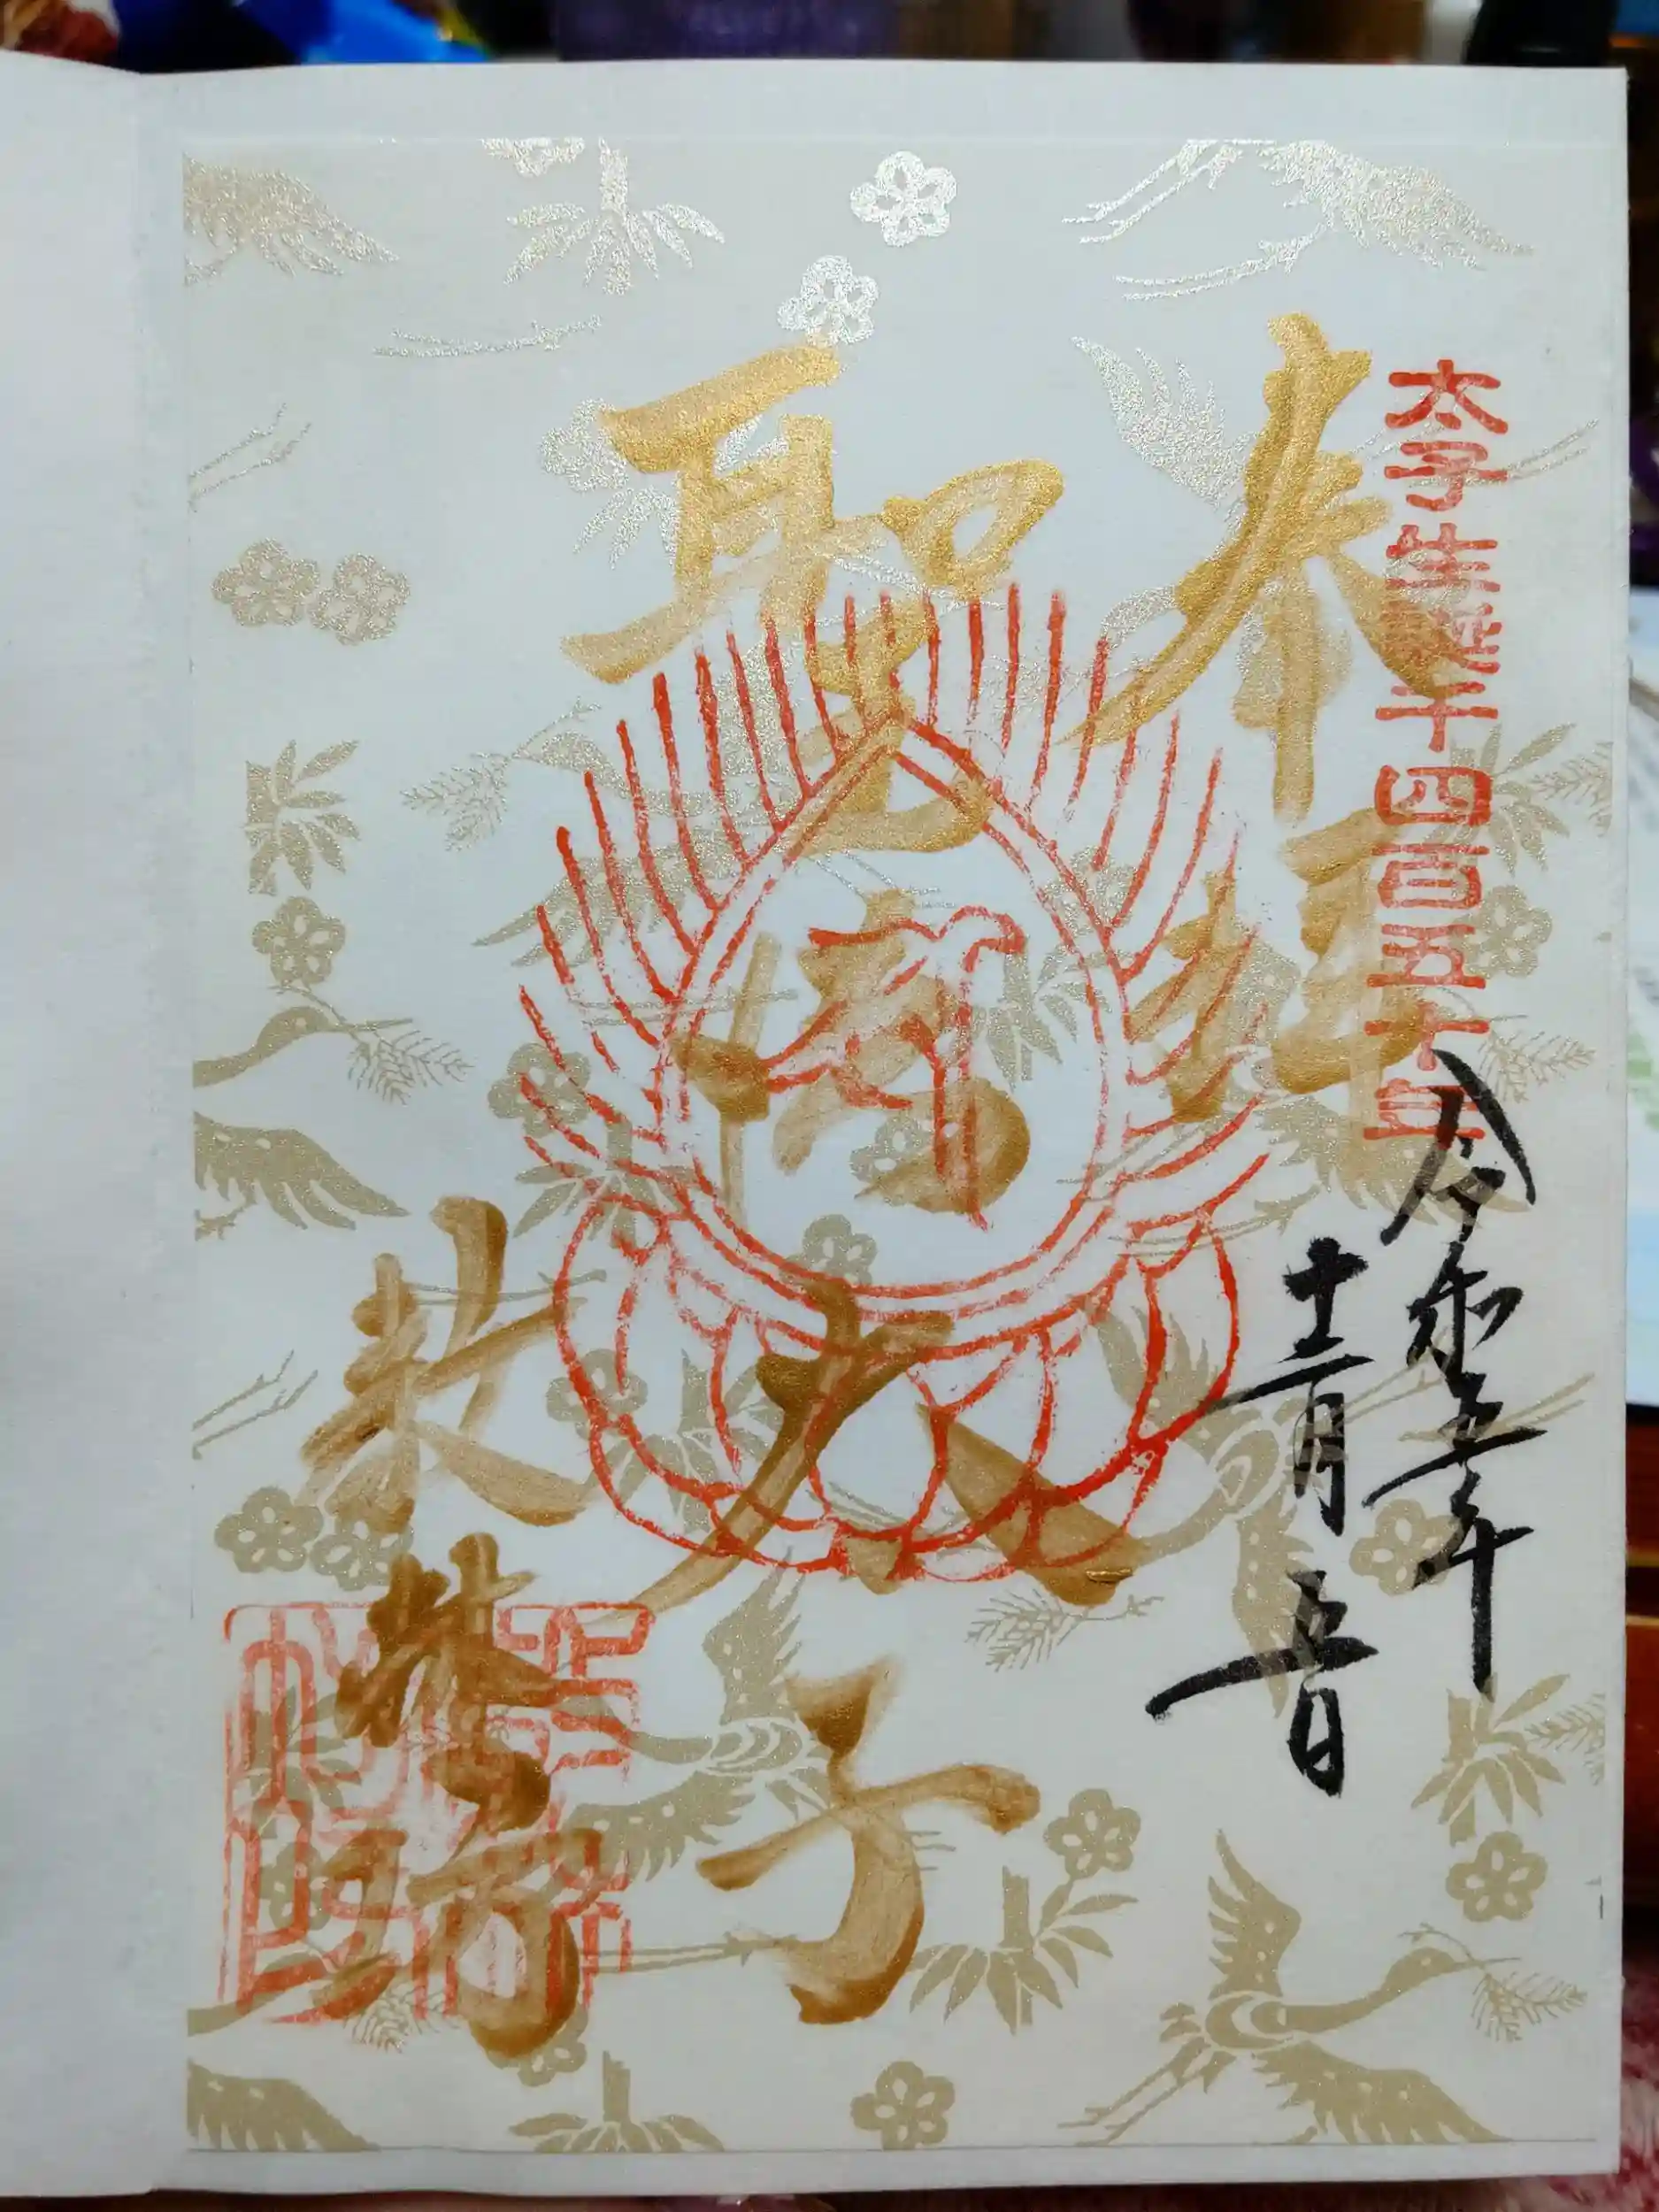 太子生誕千四百五十年
奉拝
令和五年
十二月五日
聖徳太子